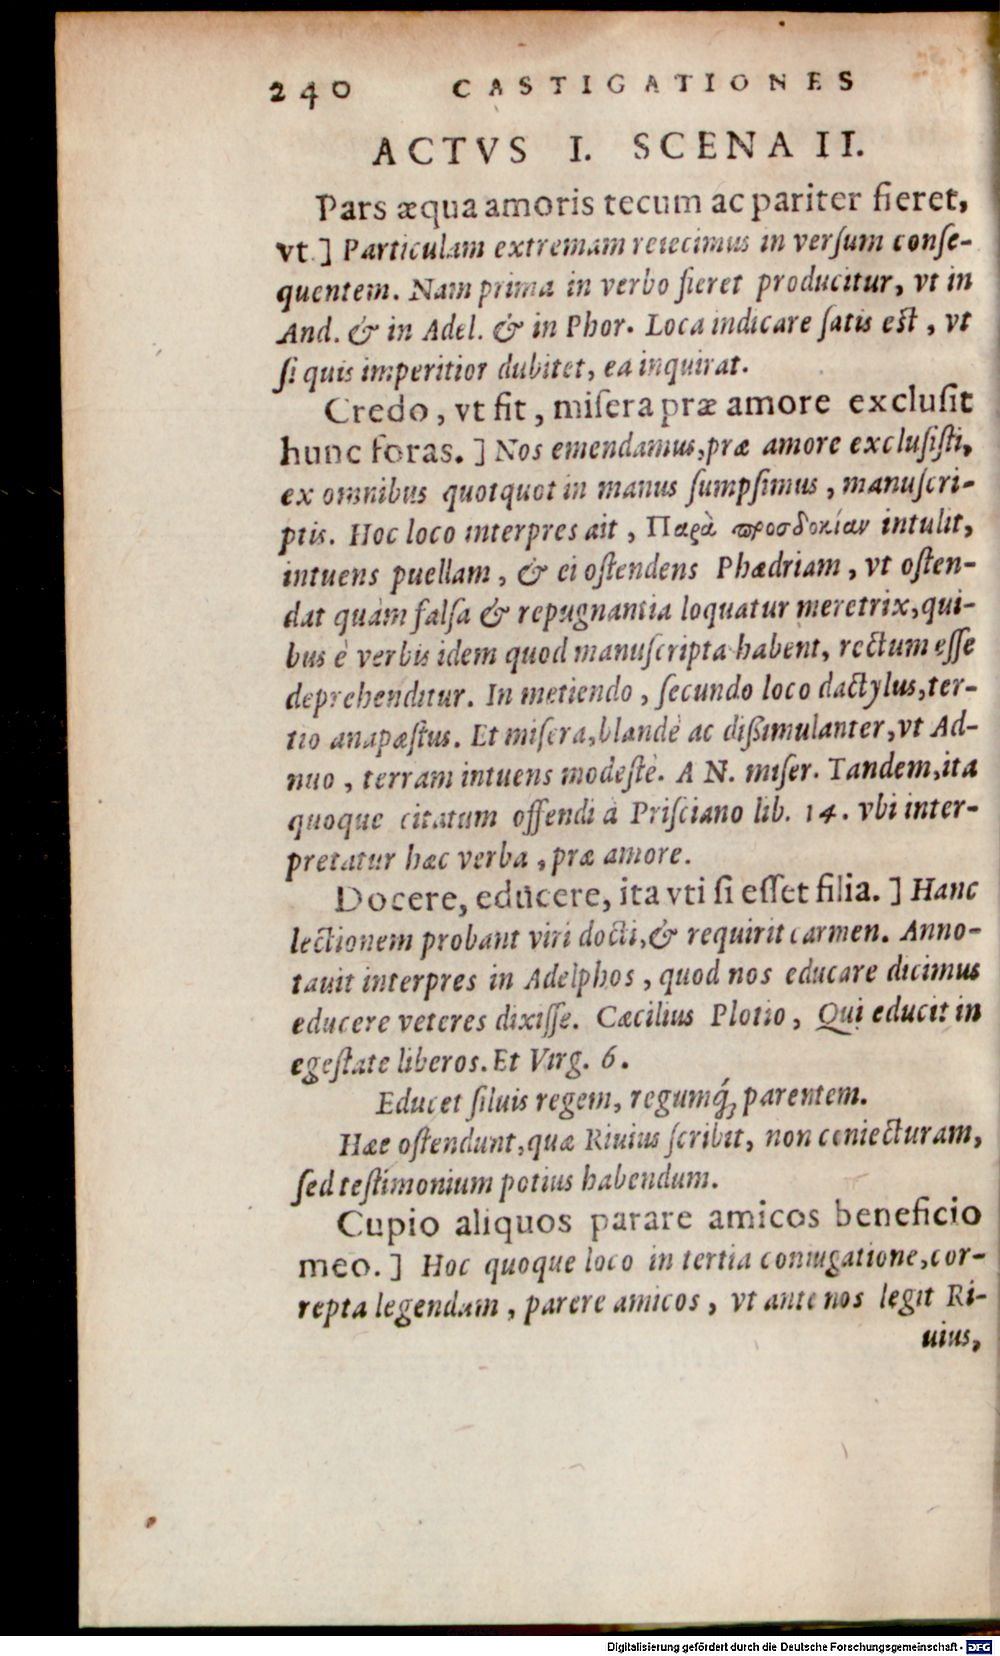 240 CASTIGATIONES
ACTVS I. SCENA II.
Pars æqua amoris tecum ac pariter fieret,
vt.] Particulam extremam reiecimus in verſum conſe-
quentem. Nam prima in verbo fieret producitur, vt in
And. & in Adel. & in Phor. Loca indicare ſatis eſt, vt
ſi quis imperitior dubitet, ea inquirat.
Credo, vt fit, miſera præ amore excluſit
hunc foras.] Nos emendamus, præ amore excluſiſti,
ex omnibus quotquot in manus ſumpſimus, manuſcri-
ptis. Hoc loco interpres ait, Παρὰ προσδοκίαν intulit,
intuens puellam, & ei oſtendens Phædriam, vt oſten-
dat quàm falſa & repugnantia loquatur meretrix, qui-
bus è verbis idem quod manuſcripta habent, rectum eſſe
deprehenditur. In metiendo, ſecundo loco dactylus, ter-
tio anapæſtus. Et miſera, blandè ac dißimulanter, vt Ad-
nuo, terram intuens modeſtè. A N. miſer. Tandem, ita
quoque citatum offendi à Priſciano lib. 14. vbi inter-
pretatur hæc verba, præ amore.
Docere, edūcere, ita vti ſi eſſet filia.] Hanc
lectionem probant viri docti, & requirit carmen. Anno-
tauit interpres in Adelphos, quod nos educare dicimus
educere veteres dixiſſe. Cæcilius Plotio, Qui educit in
egeſtate liberos. Et Virg. 6.
Educet ſiluis regem, regumq́; parentem.
Hæc oſtendunt, quæ Riuius ſcribit, non coniecturam,
ſed teſtimonium potius habendum.
Cupio aliquos parare amicos beneficio
meo.] Hoc quoque loco in tertia coniugatione, cor-
repta legendam, parere amicos, vt ante nos legit Ri-
uius,
Digitalisierung gefördert durch die Deutsche Forschungsgemeinschaft - DFG